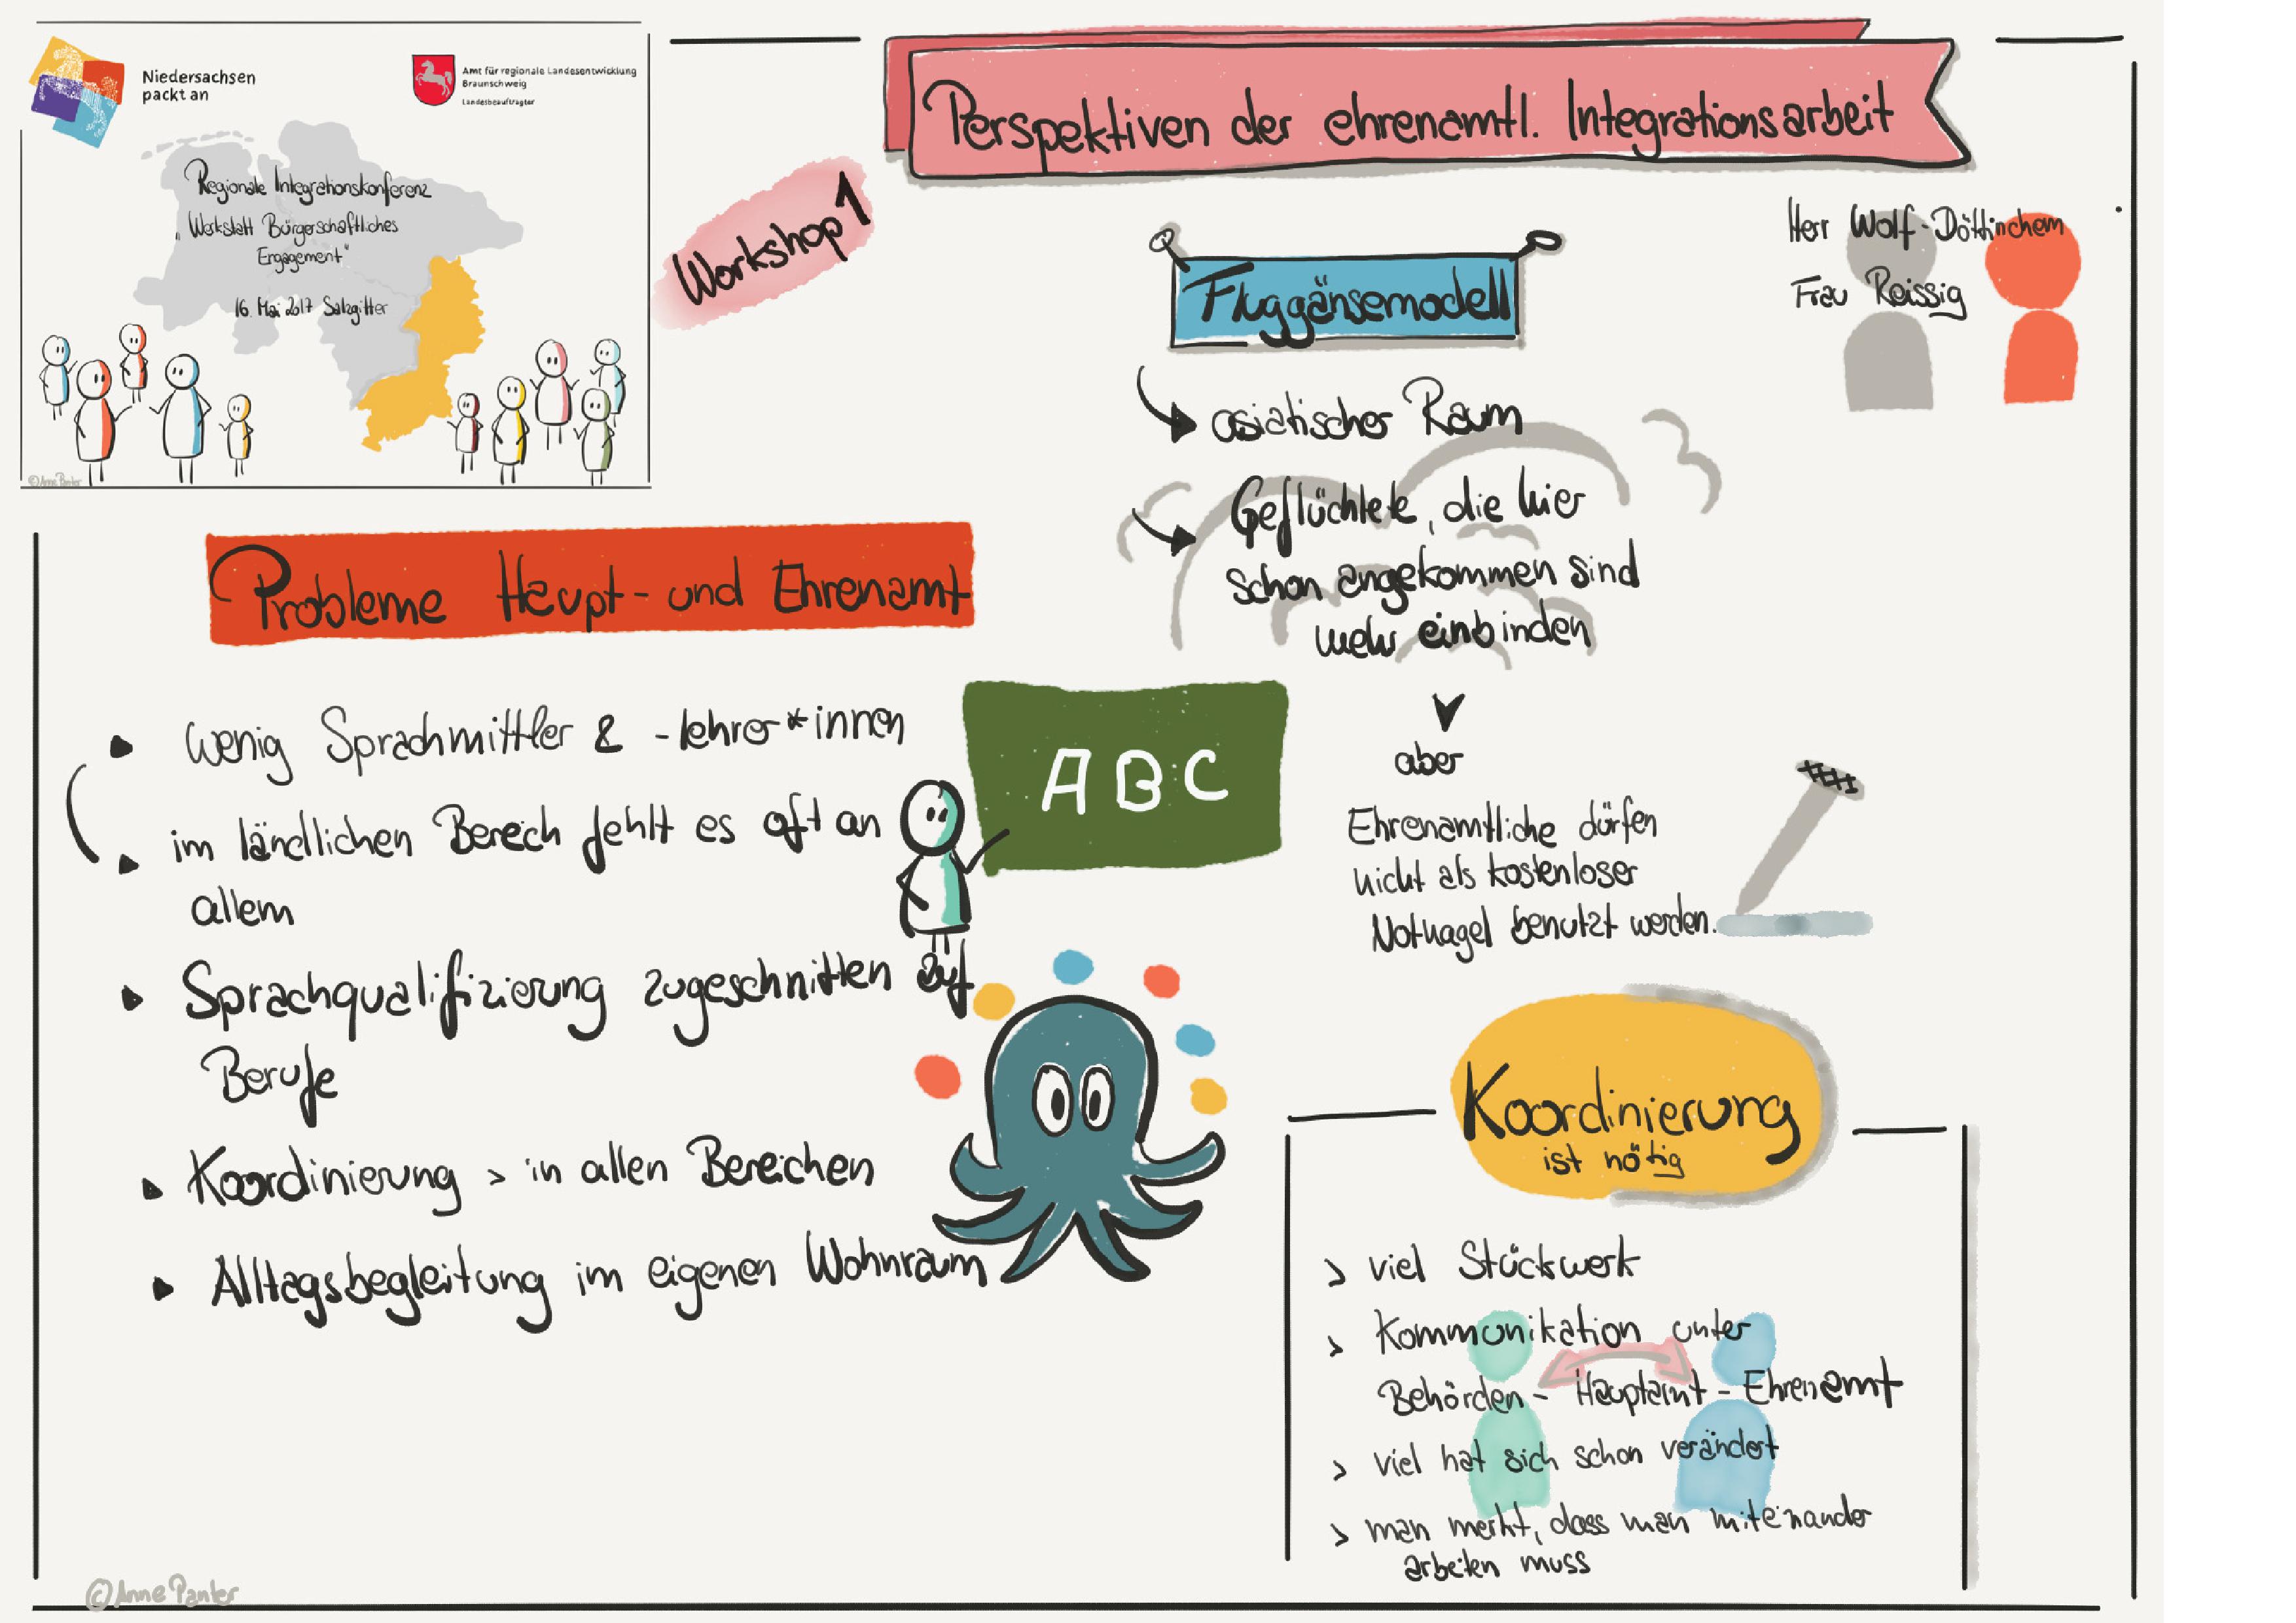 Niedersachsen
packt an
Amt für regionale Landesentwicklung
Braunschweig
Landesbeauftragter
Regionale Integrationskonferenz
„Werkstatt Bürgerschaftliches
Engagement"
16. Mai 2017 Salzgitter
©Anne Panter
Workshop 1
Perspektiven der ehrenamtl. Integrationsarbeit
Herr Wolf-Döttinchem
Frau Reissig
Fluggänsemodell
asiatischer Raum
Geflüchtete, die hier
schon angekommen sind
mehr einbinden
aber
Ehrenamtliche dürfen
nicht als kostenloser
Notnagel benutzt werden.
Probleme Haupt- und Ehrenamt
wenig Sprachmittler & -lehrer*innen
im ländlichen Bereich fehlt es oft an
allem
Sprachqualifizierung zugeschnitten auf
Berufe
Koordinierung > in allen Bereichen
Alltagsbegleitung im eigenen Wohnraum
ABC
Koordinierung
ist nötig
> viel Stückwerk
> Kommunikation unter
Behörden - Hauptamt - Ehrenamt
> viel hat sich schon verändert
> man merkt, dass man miteinander
arbeiten muss
©Anne Panter